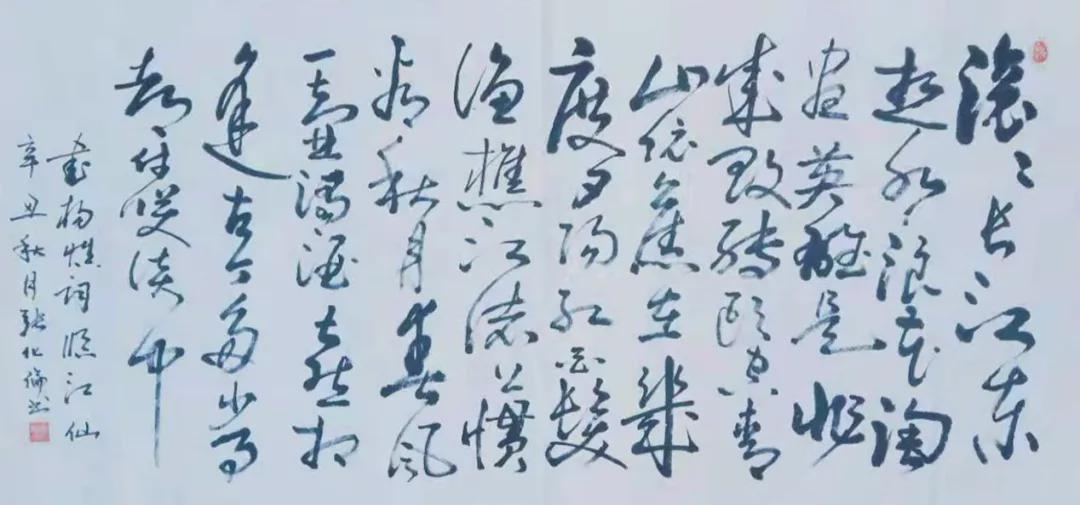 滚〻长江东
逝水浪花淘
尽英雄是非
成败转头空青
山依舊在幾
度夕阳红白髮
渔樵江渚上惯
看秋月春风
一壶浊酒喜相
逢古今多少事
都付笑谈中
书杨慎词临江仙
辛丑秋月张化倫书